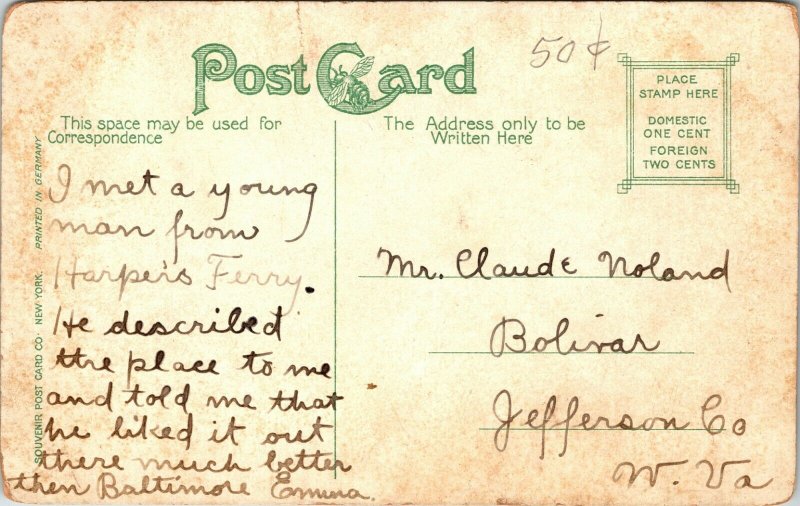 Post Card
50¢
This space may be used for
Correspondence
The Address only to be
Written Here
PLACE
STAMP HERE
DOMESTIC
ONE CENT
FOREIGN
TWO CENTS
SOUVENIR POST CARD CO. NEW YORK. PRINTED IN GERMANY
I met a young
man from
Harpers Ferry.
He described
the place to me
and told me that
he liked it out
there much better
then Baltimore Emma.
Mr. Claude Noland
Bolivar
Jefferson Co
W. Va